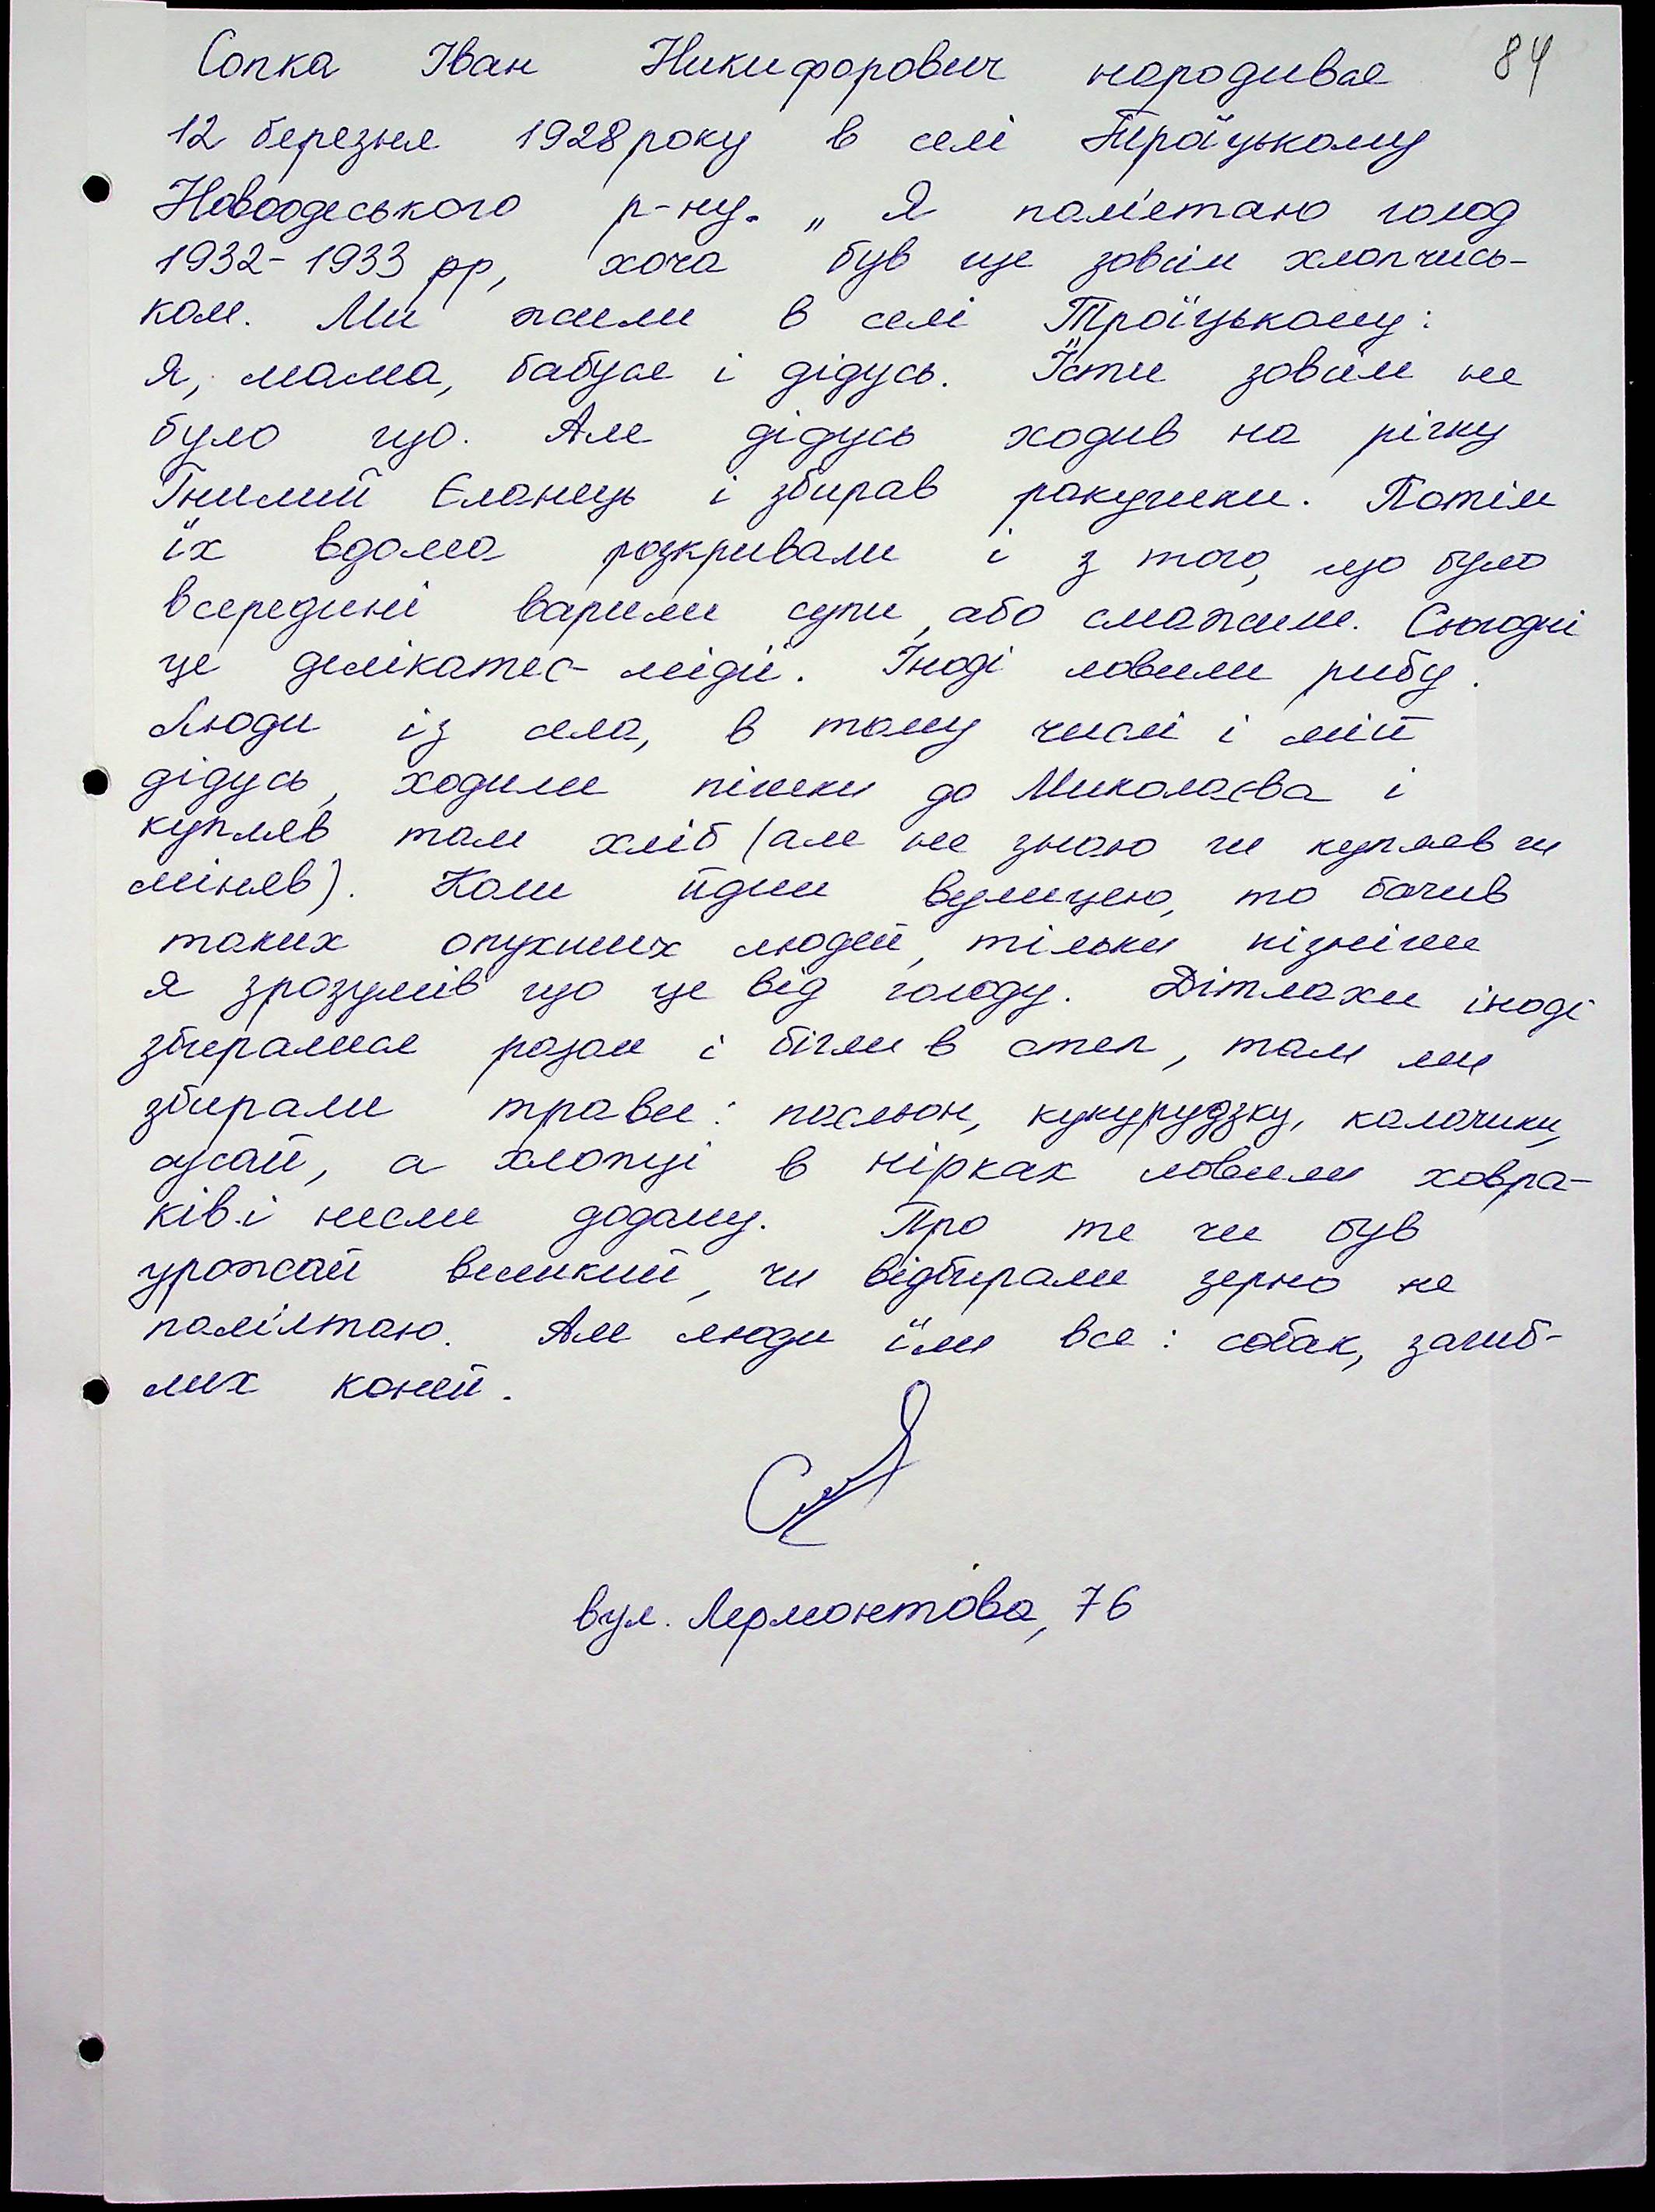 84
Сопка Іван Никифорович народився
12 березня 1928 року в селі Троїцькому
Новоодеського р-ну. „ Я пам'ятаю голод
1932-1933 рр, хоча був ще зовсім хлопчись-
ком. Ми жили в селі Троїцькому:
я, мама, бабуся і дідусь. Їсти зовсім не
було що. Але дідусь ходив на річку
Гнилий Єланець і збирав ракушки. Потім
їх вдома розкривали і з того, що було
всередині варили супи, або смажили. Сьогодні
це делікатес- мідії. Іноді ловили рибу.
Люди із села, в тому числі і мій
дідусь, ходили пішки до Миколаєва і
купляв там хліб (але не знаю чи купляв чи
міняв). Коли йдеш вулицею, то бачив
таких опухших людей, тільки пізніше
я зрозумів що це від голоду. Дітлахи іноді
збиралися разом і бігли в степ, там ми
збирали трави: пасльон, кукурудзку, калачики,
а хлопці в нірках ловили ховра-
ків і несли додому. Про те чи був
урожай великий, чи відбирали зерно не
пам'ятаю. Але люди їли все: собак, загиб-
лих коней.
вул. Лермонтова, 76